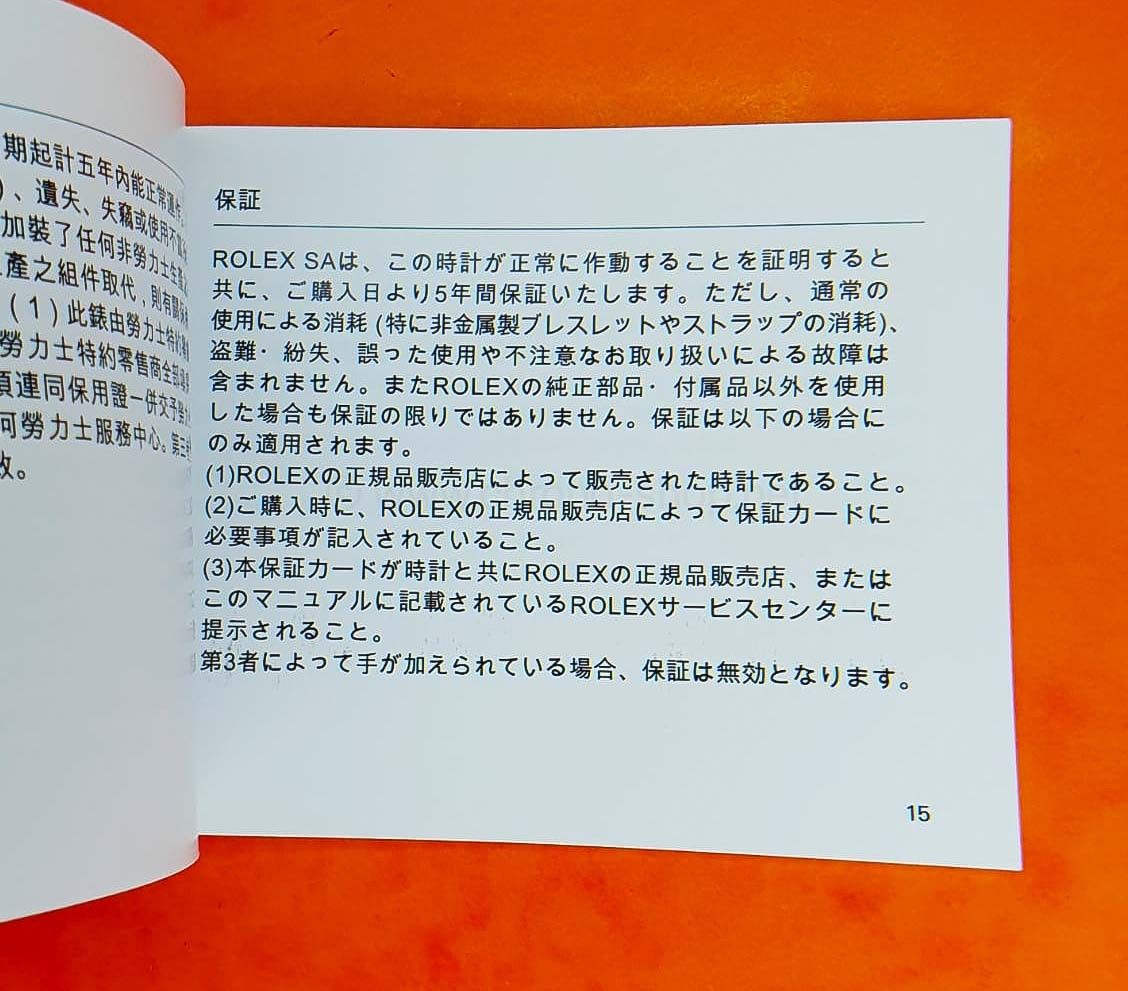 期起計五年內能正常運作
)、遺失、失竊或使用不當
加裝了任何非勞力士生產之
產之組件取代，則有關
(1)此錶由勞力士特約
勞力士特約零售商全部填
須連同保用證一併交予勞力
何勞力士服務中心。第三
效。
保証
ROLEX SAは、この時計が正常に作動することを証明すると
共に、ご購入日より5年間保証いたします。ただし、通常の
使用による消耗 (特に非金属製ブレスレットやストラップの消耗)、
盗難・紛失、誤った使用や不注意なお取り扱いによる故障は
含まれません。またROLEXの純正部品・付属品以外を使用
した場合も保証の限りではありません。保証は以下の場合に
のみ適用されます。
(1)ROLEXの正規品販売店によって販売された時計であること。
(2)ご購入時に、ROLEXの正規品販売店によって保証カードに
必要事項が記入されていること。
(3)本保証カードが時計と共にROLEXの正規品販売店、または
このマニュアルに記載されているROLEXサービスセンターに
提示されること。
第3者によって手が加えられている場合、保証は無効となります。
15